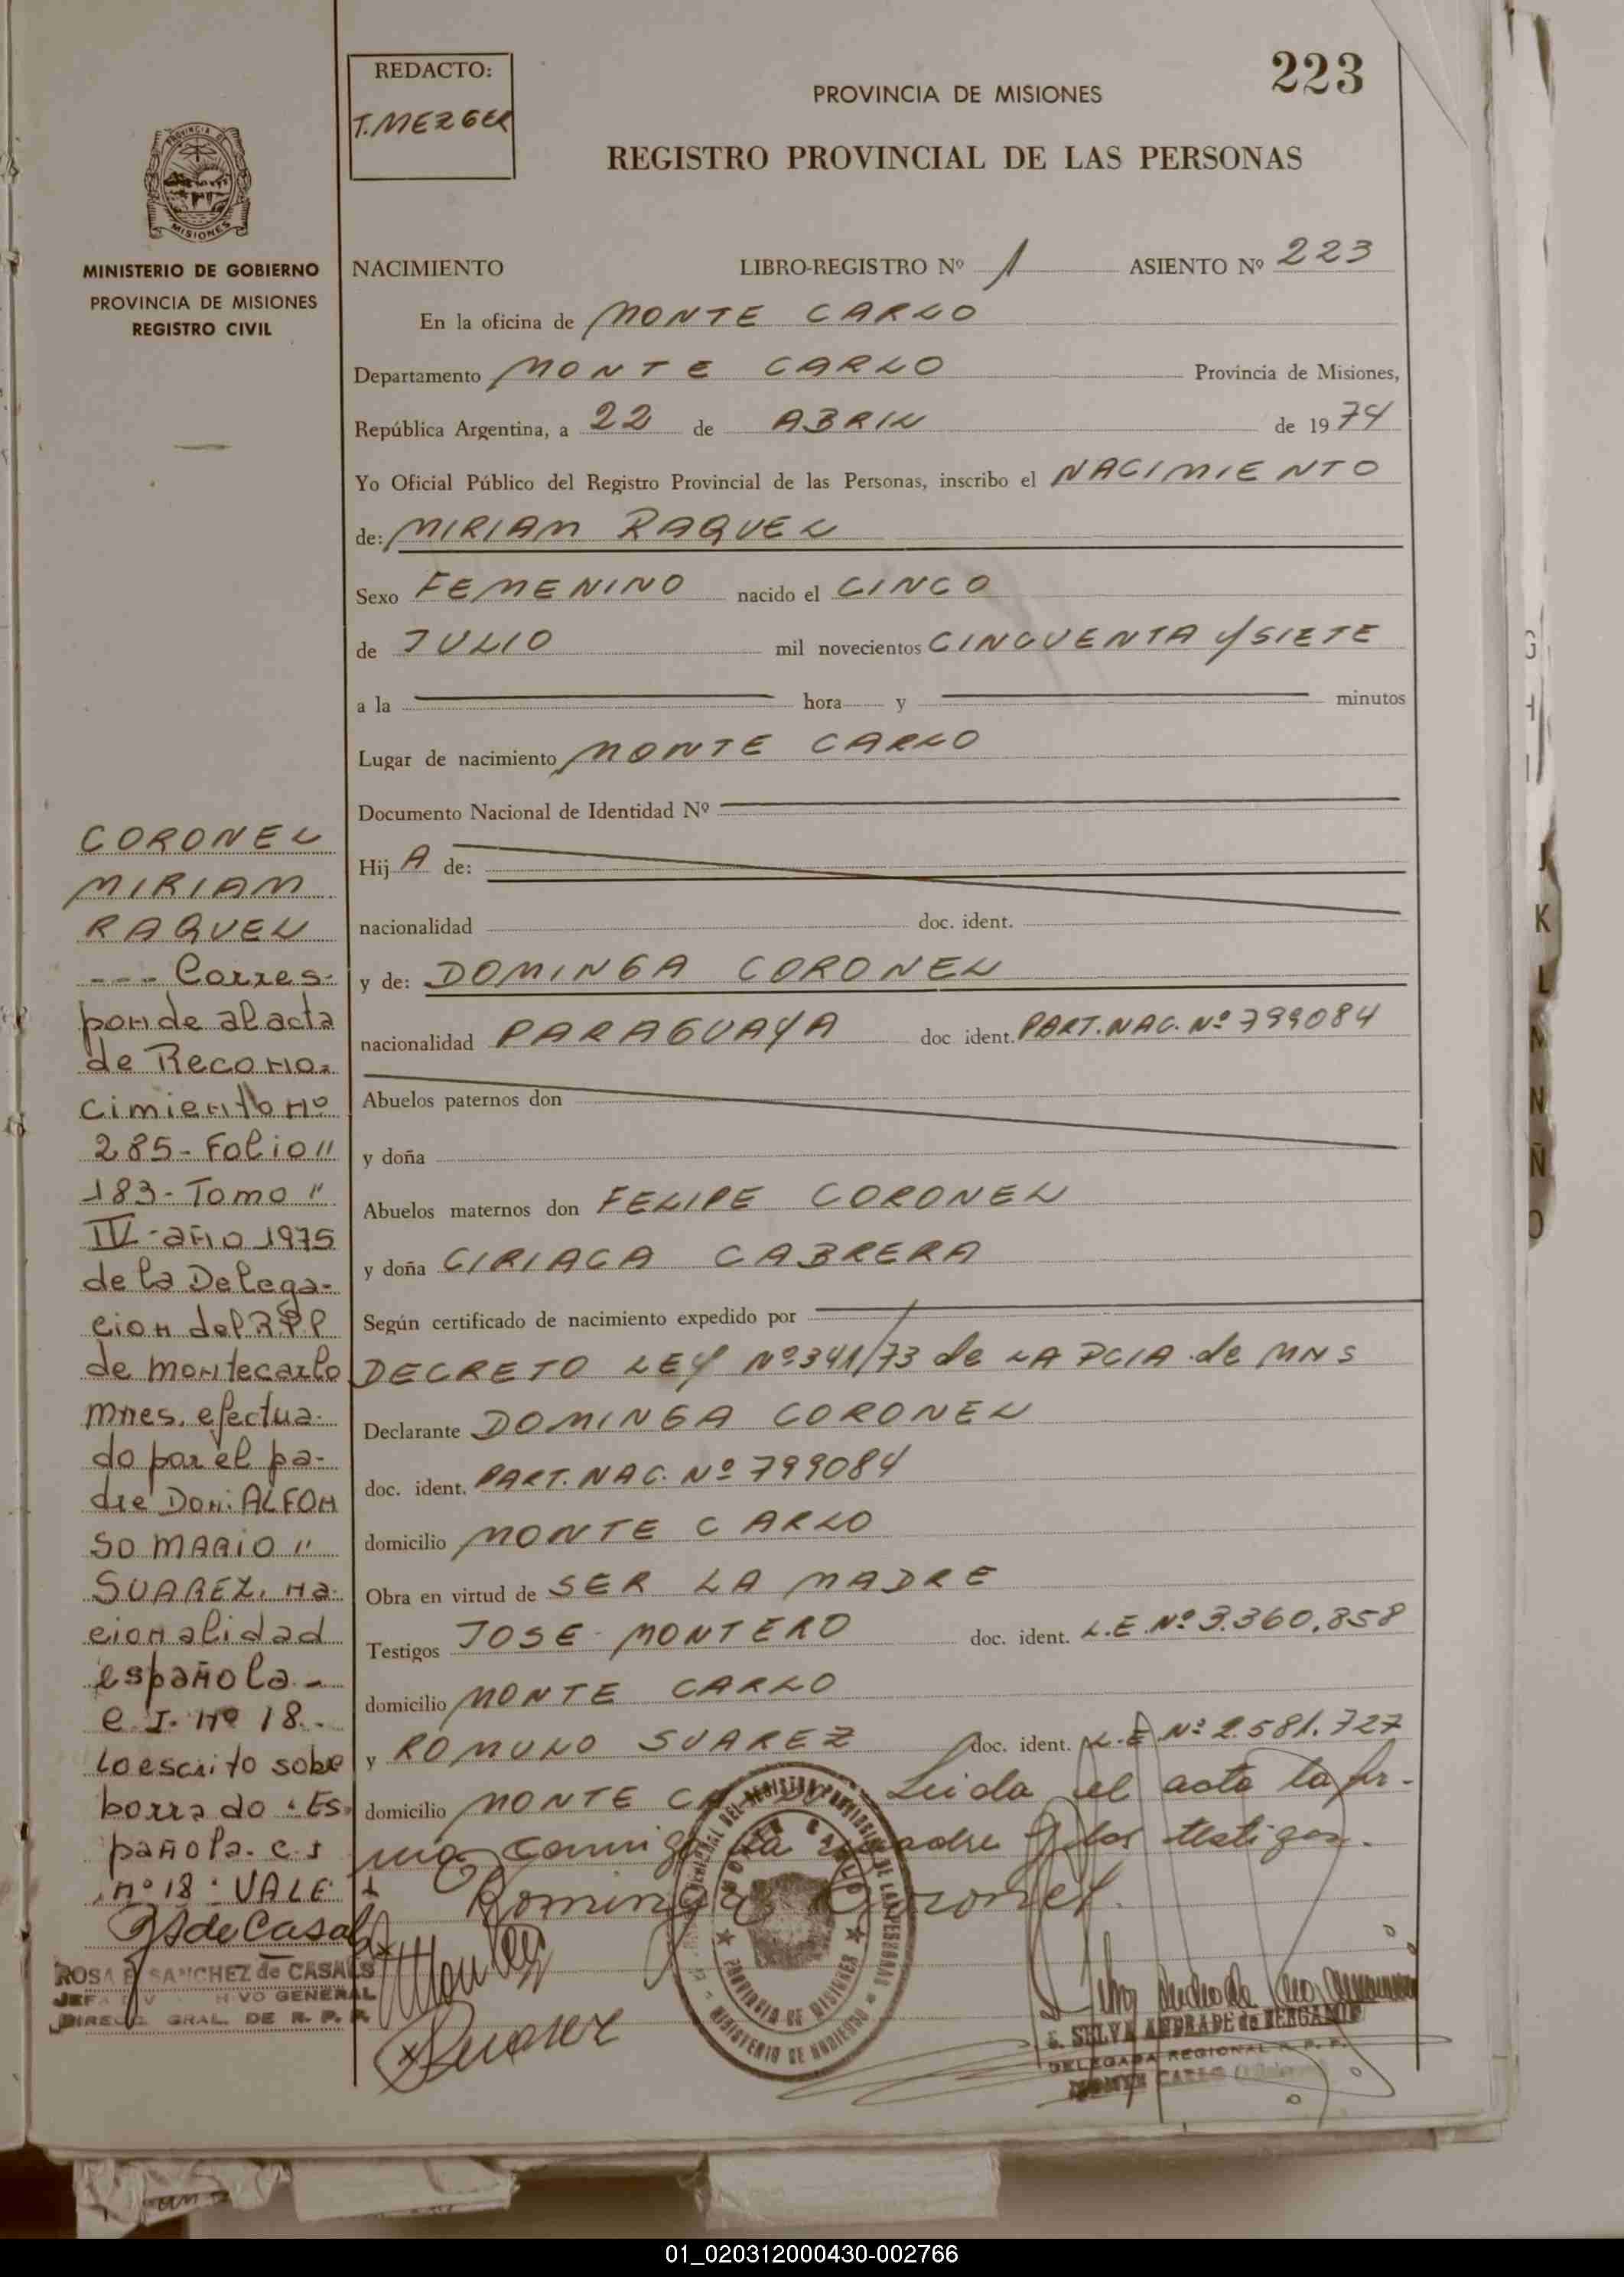 223
REDACTO:
T. MEZGER
PROVINCIA DE MISIONES
REGISTRO PROVINCIAL DE LAS PERSONAS
MISIONES
MINISTERIO DE GOBIERNO
PROVINCIA DE MISIONES
REGISTRO CIVIL
NACIMIENTO LIBRO-REGISTRO Nº 1 ASIENTO Nº 223
En la oficina de MONTE CARLO
Departamento MONTE CARLO Provincia de Misiones,
República Argentina, a 22 de ABRIL de 1974
Yo Oficial Público del Registro Provincial de las Personas, inscribo el NACIMIENTO
de: MIRIAM RAQUEL
Sexo FEMENINO nacido el CINCO
de JULIO mil novecientos CINCUENTA y SIETE
a la hora y minutos
Lugar de nacimiento MONTE CARLO
Documento Nacional de Identidad Nº
Hij A de:
nacionalidad doc. ident.
y de: DOMINGA CORONEL
nacionalidad PARAGUAYA doc ident. PART. NAC. Nº 799084
Abuelos paternos don
y doña
Abuelos maternos don FELIPE CORONEL
y doña CIRIACA CABRERA
Según certificado de nacimiento expedido por
DECRETO LEY Nº 341/73 de LA PCIA de MNS
Declarante DOMINGA CORONEL
doc. ident. PART. NAC. Nº 799084
domicilio MONTE CARLO
Obra en virtud de SER LA MADRE
Testigos JOSE MONTERO doc. ident. L.E. Nº 3.360.858
domicilio MONTE CARLO
y ROMULO SUAREZ doc. ident. L.E Nº 2.581.727
domicilio MONTE CARLO Leida el acta la fir-
ma conmigo la madre y los testigos.
Dominga Coronel.
CORONEL
MIRIAM
RAQUEL
--- Corres-
ponde al acta
de Recono-
cimiento nº
285 - Folio "
183 - Tomo "
IV - año 1975
de la Delega-
cion del R.P.P
de montecarlo
mnes. efectua-
do por el pa-
dre Don: ALFON
SO MARIO "
SUAREZ, na-
cionalidad
española.-
C.I. nº 18.-
Lo escrito sobre
borrado: Es-
pañola. C.I
nº 18: VALE
RSdeCasals
ROSA E. SANCHEZ de CASALS
GENERAL
DIREC. GRAL. DE R. P. P.
Suarez
MONTE CARLO
PROVINCIA DE MISIONES
MINISTERIO DE GOBIERNO
SELVA ANDRADE de BERGAMIN
DELEGADA REGIONAL R. P. P.
MONTE CARLO
J
K
L
M
N
Ñ
O
01_020312000430-002766